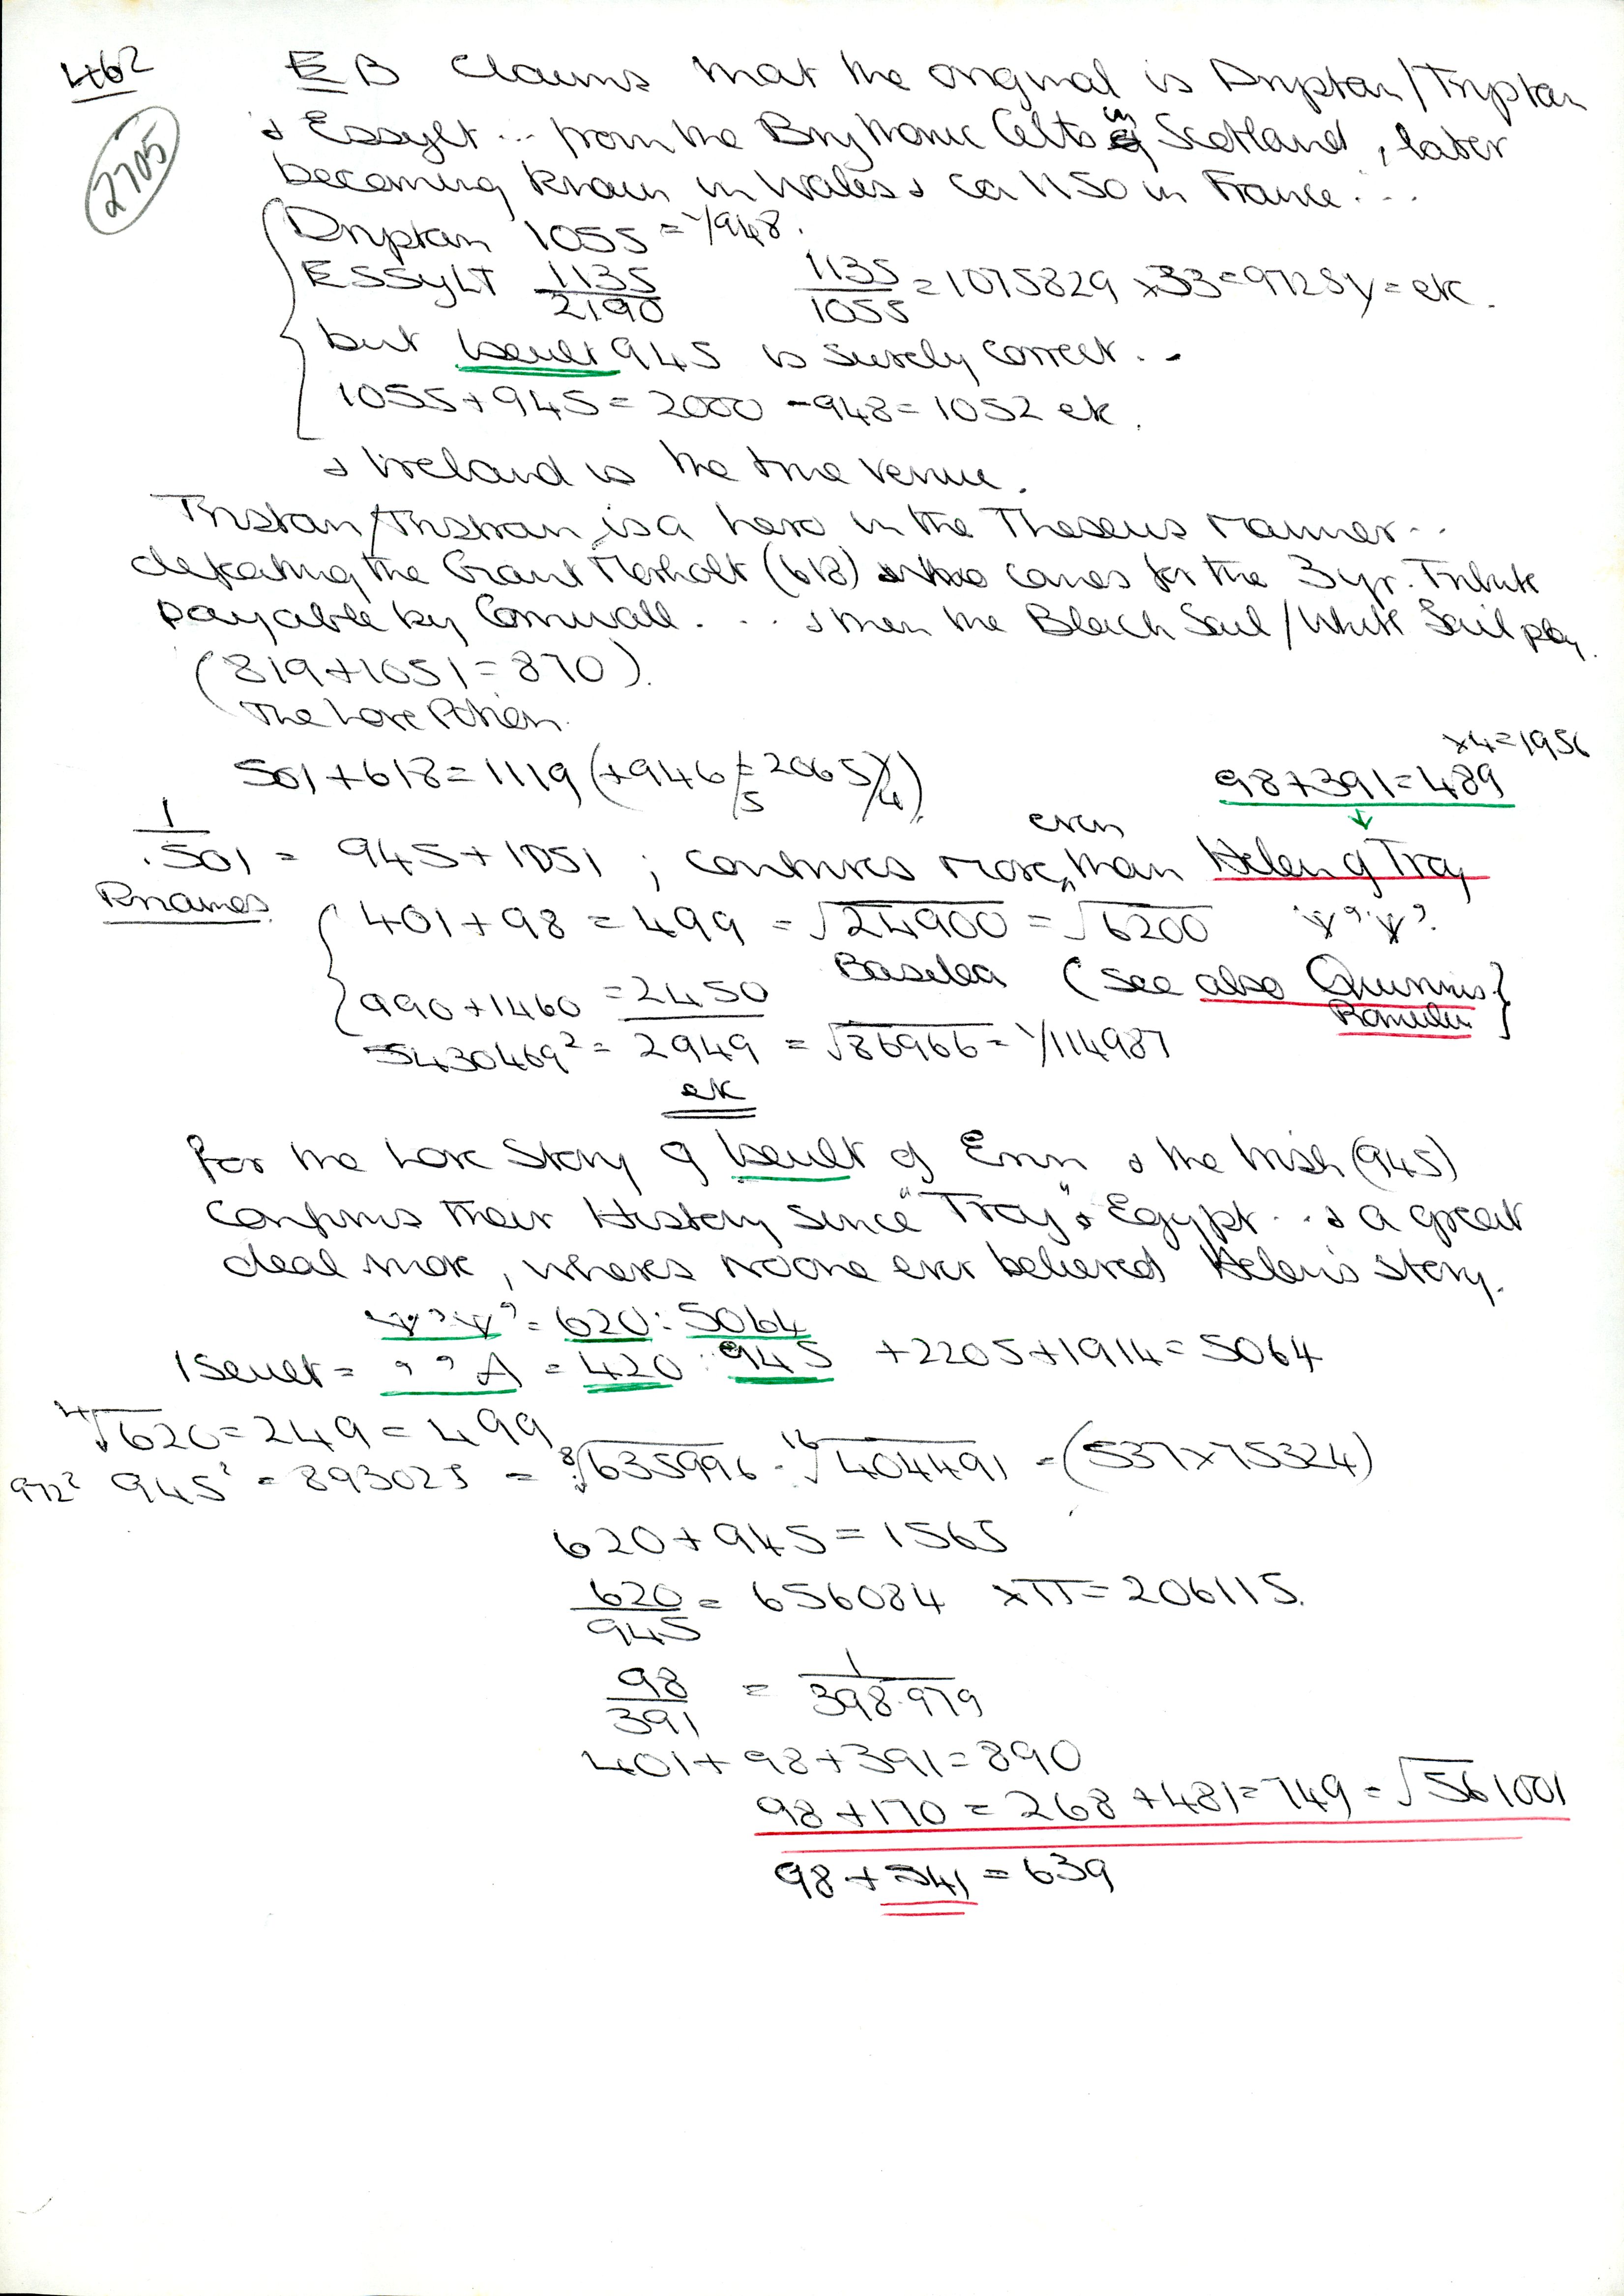 462
2705
EB Claims that the original is Dryptan/Tryptan
& Essylt ... from the Brythonic Celts in Scotland, later
becoming known in Wales & ca 1150 in France. ...
Dryptan 1055 = 1/948.
ESSYLT 1135 1135/1055 = 1075829 x33=
2190
but Iseult 945 is surely correct...
1055+945=2000 -948=1052 etc.
& Ireland is the true venue.
Tristan/Tristran is a hero in the Theseus manner...
defeating the Giant Morholt (618) who comes for the 3 yr. Tribute
payable by Cornwall. ... & then the Black Sail/White Sail ploy.
(819+1051=870).
The Love Potion.
x4=1956
501+618=1119 (+946/5=2065)/4) 98+391=489
1/.501 = 945+1051; confirms more, even than Helen of Troy
R names. 401+98=499 =√24900=√6200
990+1460 =2450 Basilea (See also Quirinus
Romulus)
5430469²= 2949 =√86966= 1/114987
etc
for the Love Story of Iseult of Erin & the Irish (945)
Confirms their History since "Troy" & Egypt ... & a great
deal more, wheras Noone ever believed Helen's story.
= 620 : 5064
ISeult = = 420 : 945 +2205+1914=5064
⁴√620=249=499
972² 945² = 893025 = ⁸√635996 = ¹⁶√404491 = (537x75324)
620+945=1565
620/945 = 656084 xπ=206115.
98/391 = 1/398.979
401+98+391=890
98+170=268+481=749=√561001
98+541=639